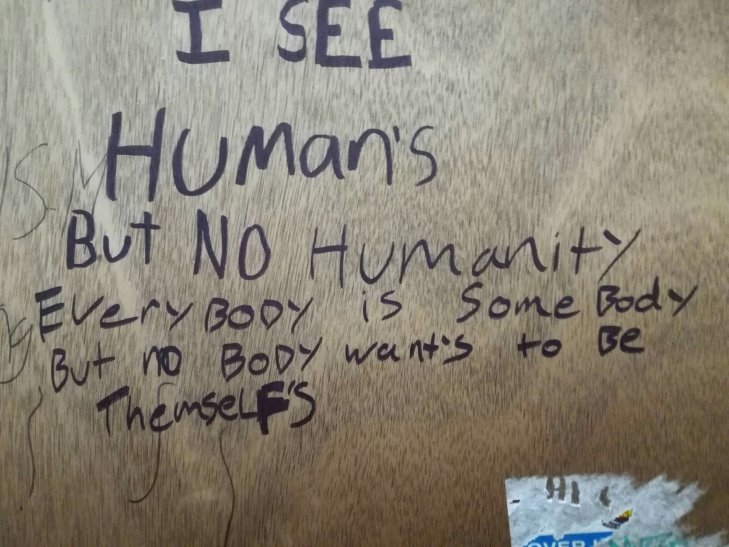 I SEE
HUMan's
BUt NO HUmanitY
EVerYBODY is SomeBody
BUt no BODY want's to Be
ThemseLF'S